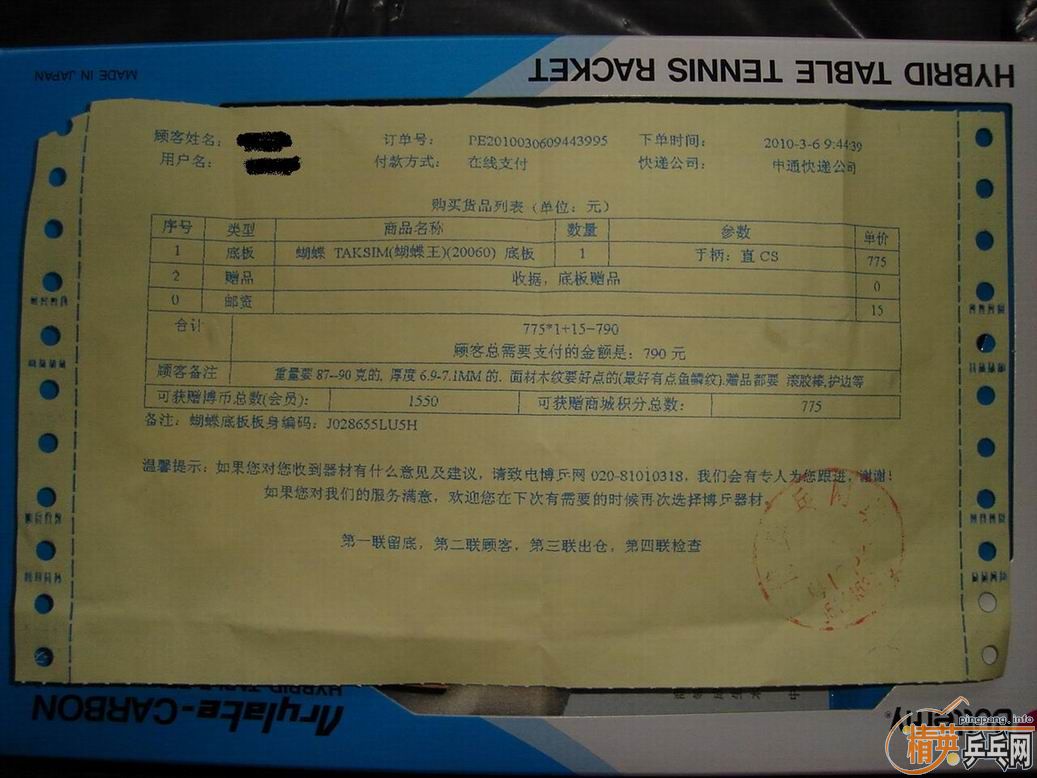 MADE IN JAPAN
HYBRID TABLE TENNIS RACKET
顾客姓名: 订单号: PE2010030609443995 下单时间: 2010-3-6 9:44:39
用户名: 付款方式: 在线支付 快递公司: 中通快递公司
购买货品列表(单位:元)
序号 类型 商品名称 数量 参数 单价
1 底板 蝴蝶 TAKSIM(蝴蝶王)(20060) 底板 1 手柄:直 CS 775
2 赠品 收据,底板赠品 0
0 邮资 15
合计 775*1+15=790
顾客总需要支付的金额是: 790 元
顾客备注 重量要 87--90 克的, 厚度 6.9-7.1MM 的. 面材木纹要好点的(最好有点鱼鳞纹).赠品都要 滚胶棒,护边等
可获赠博币总数(会员): 1550 可获赠商城积分总数: 775
备注: 蝴蝶底板板身编码: J028655LU5H
温馨提示: 如果您对您收到器材有什么意见及建议, 请致电博乒网 020-81010318, 我们会有专人为您跟进, 谢谢!
如果您对我们的服务满意, 欢迎您在下次有需要的时候再次选择博乒器材.
第一联留底, 第二联顾客, 第三联出仓, 第四联检查
Arylate-CARBON
pingpang.info
精英乒乓网